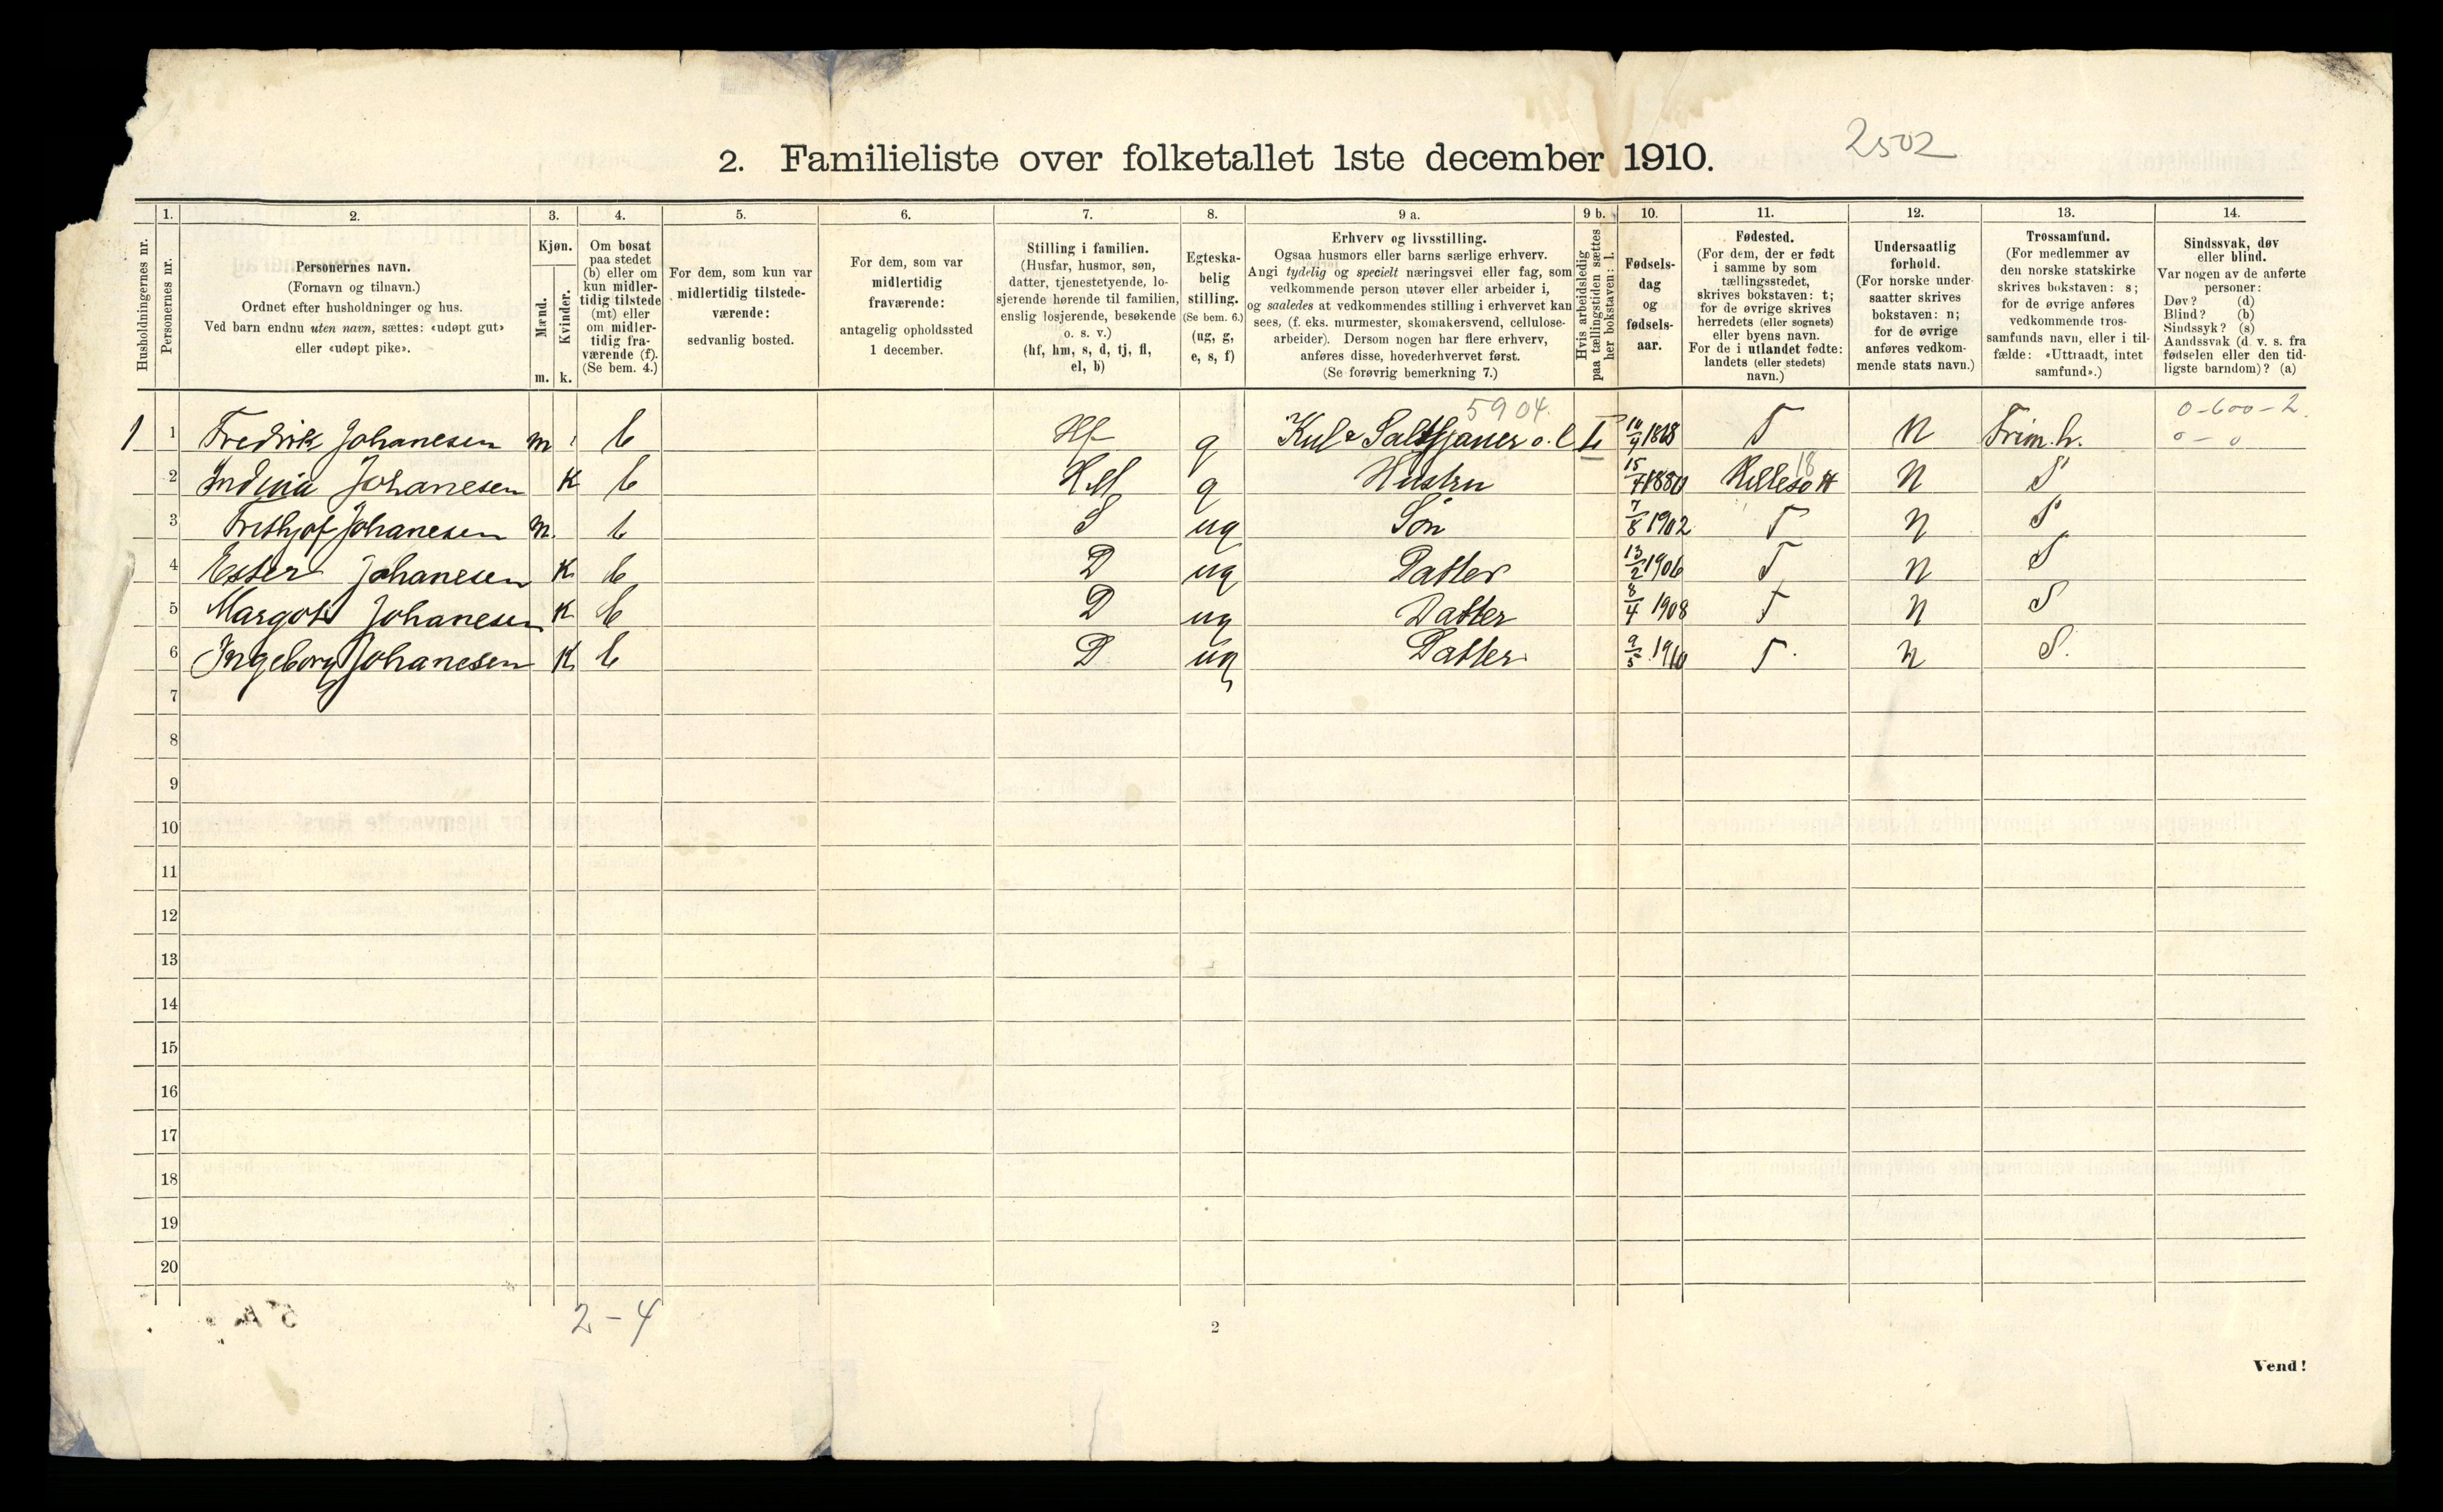 2. Familieliste over folketallet 1ste december 1910.
2502
1. 2. 3. 4. 5. 6. 7. 8. 9 a. 9 b. 10. 11. 12. 13. 14.
Husholdningernes nr.
Personernes nr.
Personernes navn.
(Fornavn og tilnavn.)
Ordnet efter husholdninger og hus.
Ved barn endnu uten navn, sættes: «udøpt gut»
eller «udøpt pike».
Kjøn.
Mænd.
m.
Kvinder.
k.
Om bosat
paa stedet
(b) eller om
kun midler-
tidig tilstede
(mt) eller
om midler-
tidig fra-
værende (f).
(Se bem. 4.)
For dem, som kun var
midlertidig tilstede-
værende:
sedvanlig bosted.
For dem, som var
midlertidig
fraværende:
antagelig opholdssted
1 december.
Stilling i familien.
(Husfar, husmor, søn,
datter, tjenestetyende, lo-
sjerende hørende til familien,
enslig losjerende, besøkende
o. s. v.)
(hf, hm, s, d, tj, fl,
el, b)
Egteska-
belig
stilling.
(Se bem. 6.)
(ug, g,
e, s, f)
Erhverv og livsstilling.
Ogsaa husmors eller barns særlige erhverv.
Angi tydelig og specielt næringsvei eller fag, som
vedkommende person utøver eller arbeider i,
og saaledes at vedkommendes stilling i erhvervet kan
sees, (f. eks. murmester, skomakersvend, cellulose-
arbeider). Dersom nogen har flere erhverv,
anføres disse, hovederhvervet først.
(Se forøvrig bemerkning 7.)
Hvis arbeidsledig
paa tællingstiden sættes
her bokstaven: l.
Fødsels-
dag
og
fødsels-
aar.
Fødested.
(For dem, der er født
i samme by som
tællingsstedet,
skrives bokstaven: t;
for de øvrige skrives
herredets (eller sognets)
eller byens navn.
For de i utlandet fødte:
landets (eller stedets)
navn.)
Undersaatlig
forhold.
(For norske under-
saatter skrives
bokstaven: n;
for de øvrige
anføres vedkom-
mende stats navn.)
Trossamfund.
(For medlemmer av
den norske statskirke
skrives bokstaven: s;
for de øvrige anføres
vedkommende tros-
samfunds navn, eller i til-
fælde: «Uttraadt, intet
samfund».)
Sindssvak, døv
eller blind.
Var nogen av de anførte
personer:
Døv? (d)
Blind? (b)
Sindssyk? (s)
Aandssvak (d. v. s. fra
fødselen eller den tid-
ligste barndom)? (a)
5904. 0-600-2.
1 1 Fredrik Johanesen m b Hf g Kul & 10/9 T N 0-0
2 Johanesen K b HM g Hustru 15/4 1880 18 N S
3 Frithjof Johanesen m. b S ug Søn 7/8 1902 T N S
4 Ester Johanesen K b D ug Datter 13/2 1906 T N S
5 Margot Johanesen K b D ug Datter 8/4 1908 T N S
6 Ingeborg Johanesen K b D ug Datter 9/5 1910 T. N S.
7
8
9
10
11
12
13
14
15
16
17
18
19
20
2-4
2
Vend!